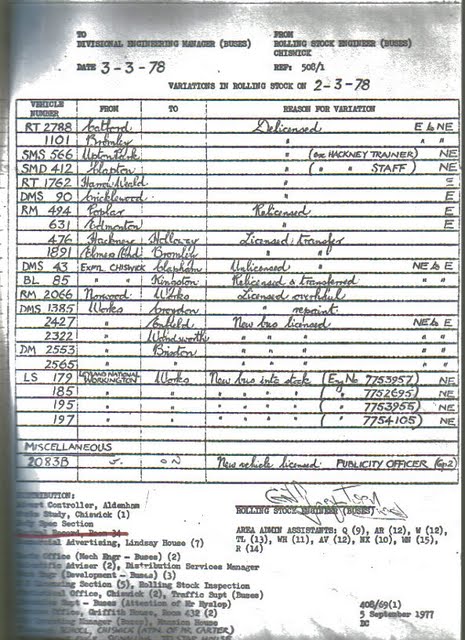 TO FROM
DIVISIONAL ENGINEERING MANAGER (BUSES) ROLLING STOCK ENGINEER (BUSES)
CHISWICK
DATE 3-3-78 REF: 508/1
VARIATIONS IN ROLLING STOCK ON 2-3-78
VEHICLE NUMBER FROM TO REASON FOR VARIATION
RT 2788 Catford Delicensed E to NE
1101 Bromley " " "
SMS 566 Upton Park " (ex HACKNEY TRAINER) NE
SMD 412 Clapton " ( " " STAFF) NE
RT 1762 Harrow Weald " E
DMS 90 Cricklewood " E
RM 494 Poplar Relicensed E
631 Edmonton " E
476 Hackney Holloway Licensed transfer
1891 Elmers End Bromley " "
DMS 43 EXPTL CHISWICK Clapham Unlicensed " NE to E
BL 85 " " Kingston Relicensed & transferred " "
RM 2066 Norwood Works Licensed overhaul
DMS 1385 Works Croydon " repaint
2427 " Enfield New bus licensed NE to E
2322 " Wandsworth " " " " "
DM 2553 " Brixton " " " " "
2565 " " " " " " "
LS 179 LEYLAND NATIONAL WORKINGTON Works New bus into stock (Eng No 7753957) NE
185 " " " " " " ( " 7752695) NE
195 " " " " " " ( " 7753955) NE
197 " " " " " " ( " 7754105) NE
MISCELLANEOUS
2083B ON New vehicle licensed PUBLICITY OFFICER (Gp2)
DISTRIBUTION:
Controller, Aldenham
Works Study, Chiswick (1)
Spec Section
Commercial Advertising, Lindsay House (7)
Office (Mech Engr - Buses) (2)
Adviser (2), Distribution Services Manager
Engr (Development - Buses) (3)
Licensing Section (5), Rolling Stock Inspection
Office, Chiswick (2), Traffic Supt (Buses)
Supt - Buses (Attention of Mr Hyslop)
Office, Griffith House, Room 432 (2)
Manager (Buses), Mansion House
SCHOOL, CHISWICK (ATTN. OF MR. CARTER)
ROLLING STOCK ENGINEER (BUSES)
AREA ADMIN ASSISTANTS: Q (9), AR (12), W (12),
TL (13), WH (11), AV (12), NX (10), WN (15),
R (14)
408/69(1)
5 September 1977